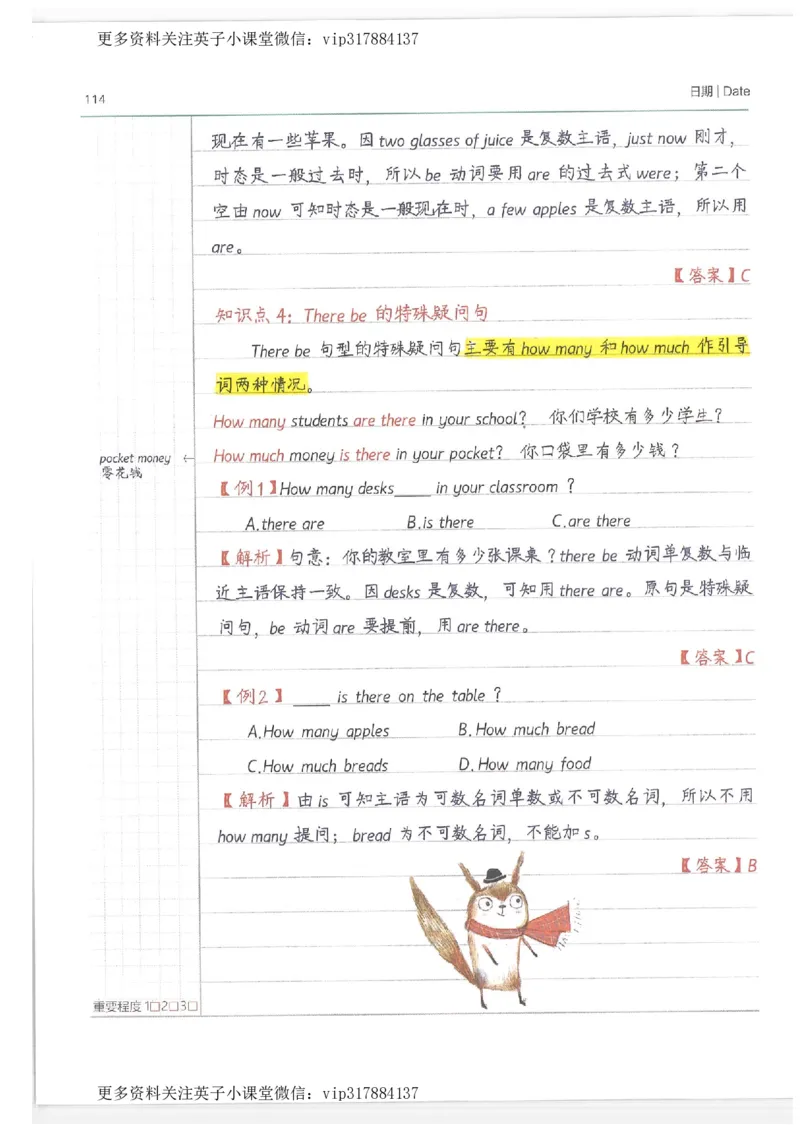 更多资料关注英子小课堂微信：vip317884137
114
日期 | Date
现在有一些苹果。因 two glasses of juice 是复数主语，just now 刚才，
时态是一般过去时，所以 be 动词要用 are 的过去式 were；第二个
空由 now 可知时态是一般现在时，a few apples 是复数主语，所以用
are。
【答案】C
知识点 4：There be 的特殊疑问句
There be 句型的特殊疑问句主要有 how many 和 how much 作引导
词两种情况。
How many students are there in your school？ 你们学校有多少学生？
pocket money ←
零花钱
How much money is there in your pocket？ 你口袋里有多少钱？
【例1】How many desks____ in your classroom ？
A.there are B.is there C.are there
【解析】句意：你的教室里有多少张课桌？there be 动词单复数与临
近主语保持一致。因 desks 是复数，可知用 there are。原句是特殊疑
问句，be 动词 are 要提前，用 are there。
【答案】C
【例2】 ____ is there on the table ？
A.How many apples B.How much bread
C.How much breads D.How many food
【解析】由 is 可知主语为可数名词单数或不可数名词，所以不用
how many 提问；bread 为不可数名词，不能加 s。
【答案】B
重要程度 1□2□3□
更多资料关注英子小课堂微信：vip317884137